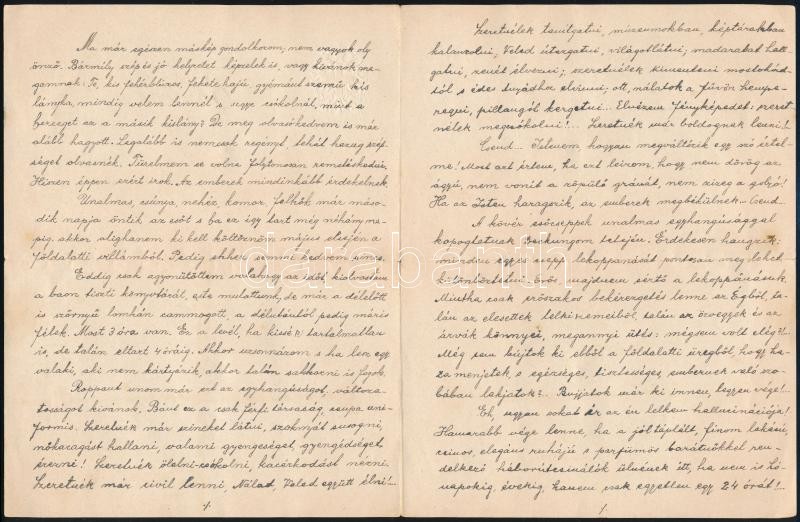 Ma már egészen máskép gondolkozom; nem vagyok oly
önző. Bármily szép és jó helyzetet képzelek is, vagy kívánok ma-
gamnak. Te, kis fehérblúzos, fekete hajú, gyémánt szemű kis
lányka, mindig velem lennél s ugye csókolnál, mint a
herceget ez a másik kislány? De meg olvasókedvem is már
alább hagyott. Legalább is nemcsak regényt, tehát hazug szép-
séget olvasnék. Türelmem se volna folytonosan remetéskedni.
Hiszen éppen ezért írok. Az emberek mindinkább érdekelnek.
Unalmas, csúnya, nehéz, komor felhők már máso-
dik napja öntik az esőt s ha ez így tart még néhány na-
pig, akkor alighanem ki kell költöznöm május elsején a
földalatti villámból. Pedig ehhez semmi kedvem sincs.
Eddig csak agyonütöttem valahogy az időt kiolvasva
a baon tiszti könyvtárát, este mulattunk, de már a délelőtt
is szörnyű lomhán cammogott, a délutántól pedig máris
félek. Most 3 óra van. Ez a levél, ha kissé tartalmatlan
is, de talán eltart 4 óráig. Akkor uzsonnázom s ha len egy
valaki, aki nem kártyázik, akkor talán sakkozni is fogok.
Roppant unom már ezt az egyhangúságot, változa-
tosságot kívánok. Bánt ez a csak férfi társaság, csupa uni-
formis. Szeretnék már színeket látni, szoknyát suvogni,
nőkacagást hallani, valami gyengeséget, gyengédséget
érezni! Szeretnék ölelni-csókolni, kacérkodást nézni.
Szeretnék már civil lenni, Nálad, Veled együtt élni!...
Szeretnélek tanítgatni, múzeumokban, képtárakban
kalauzolni, Veled utazgatni, világot látni; madarakat hall-
gatni, zenét élvezni; szeretnélek kimenteni mostohád-
tól s édes anyádhoz elvinni; ott, nálatok a füvön hempe-
regni, pillangót kergetni... Elvészem fényképedet: szeret-
nélek megcsókolni!... Szeretnék már boldognak lenni!...
Csend... Istenem, hogyan megváltozik egy szó értel-
me! Most azt értem, ha ezt leírom, hogy nem dörög az
ágyú, nem vonít a röpülő gránát, nem sziszeg a golyó!
Ha az Isten haragszik, az emberek megbékülnek - Csend...
A kövér esőcseppek unalmas egyhangúsággal
kopogtatnak Beckungom tetején. Érdekesen hangzik:
mindnyi egyes csepp lekoppanását pontosan meg lehet
különböztetni. Erős, majdnem sértő a lekoppanásuk.
Mintha csak erőszakos bekéredzgetés lenne az Égből, ta-
lán az elesettek lelki szemeiből, talán az özvegyek és az
árvák könnyei, megannyi ütés: mégsem volt elég?!...
Még sem bújtok ki ebből a földalatti üregből, hogy ha-
za menjetek s egészséges, tisztességes, embernek való szo-
bában lakjatok?.. Bújjatok már ki innen, legyen vége!...
Eh, ugyan sokat ér az én lelkem hallucinációja!
Hamarabb vége lenne, ha a jól táplált, finom lakású,
csinos, elegáns ruhájú s parfümös barátnőkkel ren-
delkező háborúcsinálók ülnének itt, ha nem is hó-
napokig, évekig, hanem csak egyetlen egy 24 órát!...